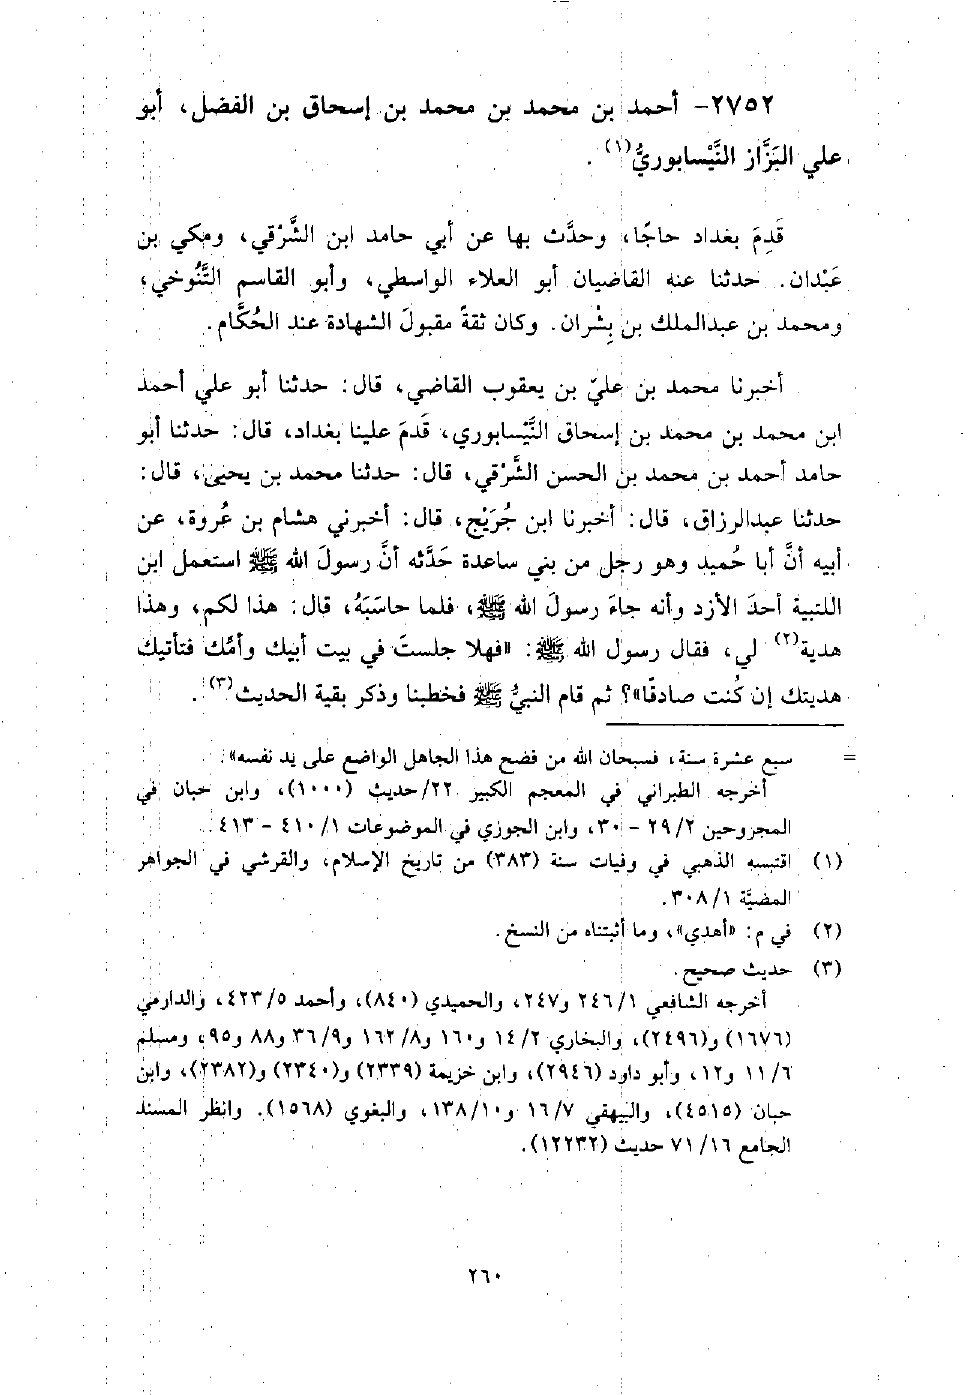 ٢٧٥٢- أحمد بن محمد بن محمد بن إسحاق بن الفضل، أبو
علي البَزَّاز النَّيْسابوريُّ(١).
قَدِمَ بغداد حاجًا، وحدَّث بها عن أبي حامد ابن الشَّرْقي، ومكي بن
عَبْدان. حدثنا عنه القاضيان أبو العلاء الواسطي، وأبو القاسم التَّنُوخي،
ومحمد بن عبدالملك بن بِشْران. وكان ثقةً مقبولَ الشهادة عند الحُكَّام.
أخبرنا محمد بن عليّ بن يعقوب القاضي، قال: حدثنا أبو علي أحمد
ابن محمد بن محمد بن إسحاق النَّيْسابوري، قَدمَ علينا بغداد، قال: حدثنا أبو
حامد أحمد بن محمد بن الحسن الشَّرْقي، قال: حدثنا محمد بن يحيى، قال:
حدثنا عبدالرزاق، قال: أخبرنا ابن جُرَيْج، قال: أخبرني هشام بن عُروة، عن
أبيه أنَّ أبا حُميد وهو رجل من بني ساعدة حَدَّثه أنَّ رسولَ الله ﷺ استعمل ابن
اللتبية أحدَ الأزد وأنه جاءَ رسولَ الله ﷺ، فلما حاسَبَهُ، قال: هذا لكم، وهذا
هدية(٢) لي، فقال رسول الله ﷺ: «فهلا جلستَ في بيت أبيك وأمِّك فتأتيك
هديتك إن كُنت صادقًا»؟ ثم قام النبيُّ ﷺ فخطبنا وذكر بقية الحديث(٣).
= سبع عشرة سنة، فسبحان الله من فضح هذا الجاهل الواضع على يد نفسه».
أخرجه الطبراني في المعجم الكبير ٢٢/حديث (١٠٠٠)، وابن حبان في
المجروحين ٢/ ٢٩ - ٣٠، وابن الجوزي في الموضوعات ١/ ٤١٠ - ٤١٣.
(١) اقتبسه الذهبي في وفيات سنة (٣٨٣) من تاريخ الإسلام، والقرشي في الجواهر
المضيَّة ١/ ٣٠٨.
(٢) في م: «أهدي»، وما أثبتناه من النسخ.
(٣) حديث صحيح.
أخرجه الشافعي ١/ ٢٤٦ و٢٤٧، والحميدي (٨٤٠)، وأحمد ٥/ ٤٢٣، والدارمي
(١٦٧٦) و(٢٤٩٦)، والبخاري ٢/ ١٤ و١٦٠ و٨/ ١٦٢ و٩/ ٣٦ و٨٨ و٩٥، ومسلم
٦/ ١١ و١٢، وأبو داود (٢٩٤٦)، وابن خزيمة (٢٣٣٩) و(٢٣٤٠) و(٢٣٨٢)، وابن
حبان (٤٥١٥)، والبيهقي ٧/ ١٦ و١٠/ ١٣٨، والبغوي (١٥٦٨). وانظر المسند
الجامع ١٦/ ٧١ حديث (١٢٢٣٢).
٢٦٠